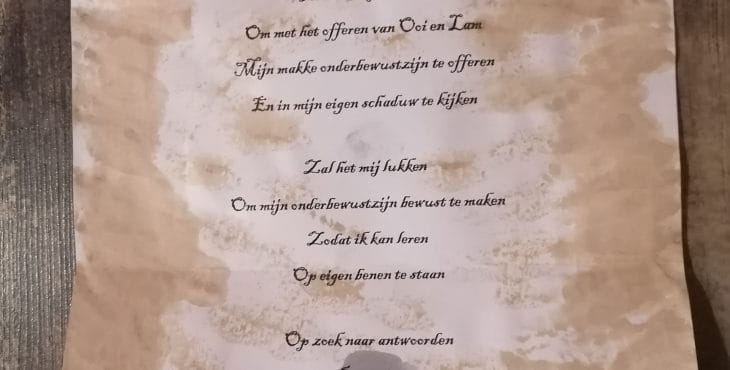 Om met het offeren van Ooi en Lam
Mijn makke onderbewustzijn te offeren
En in mijn eigen schaduw te kijken
Zal het mij lukken
Om mijn onderbewustzijn bewust te maken
Zodat ik kan leren
Op eigen benen te staan
Op zoek naar antwoorden